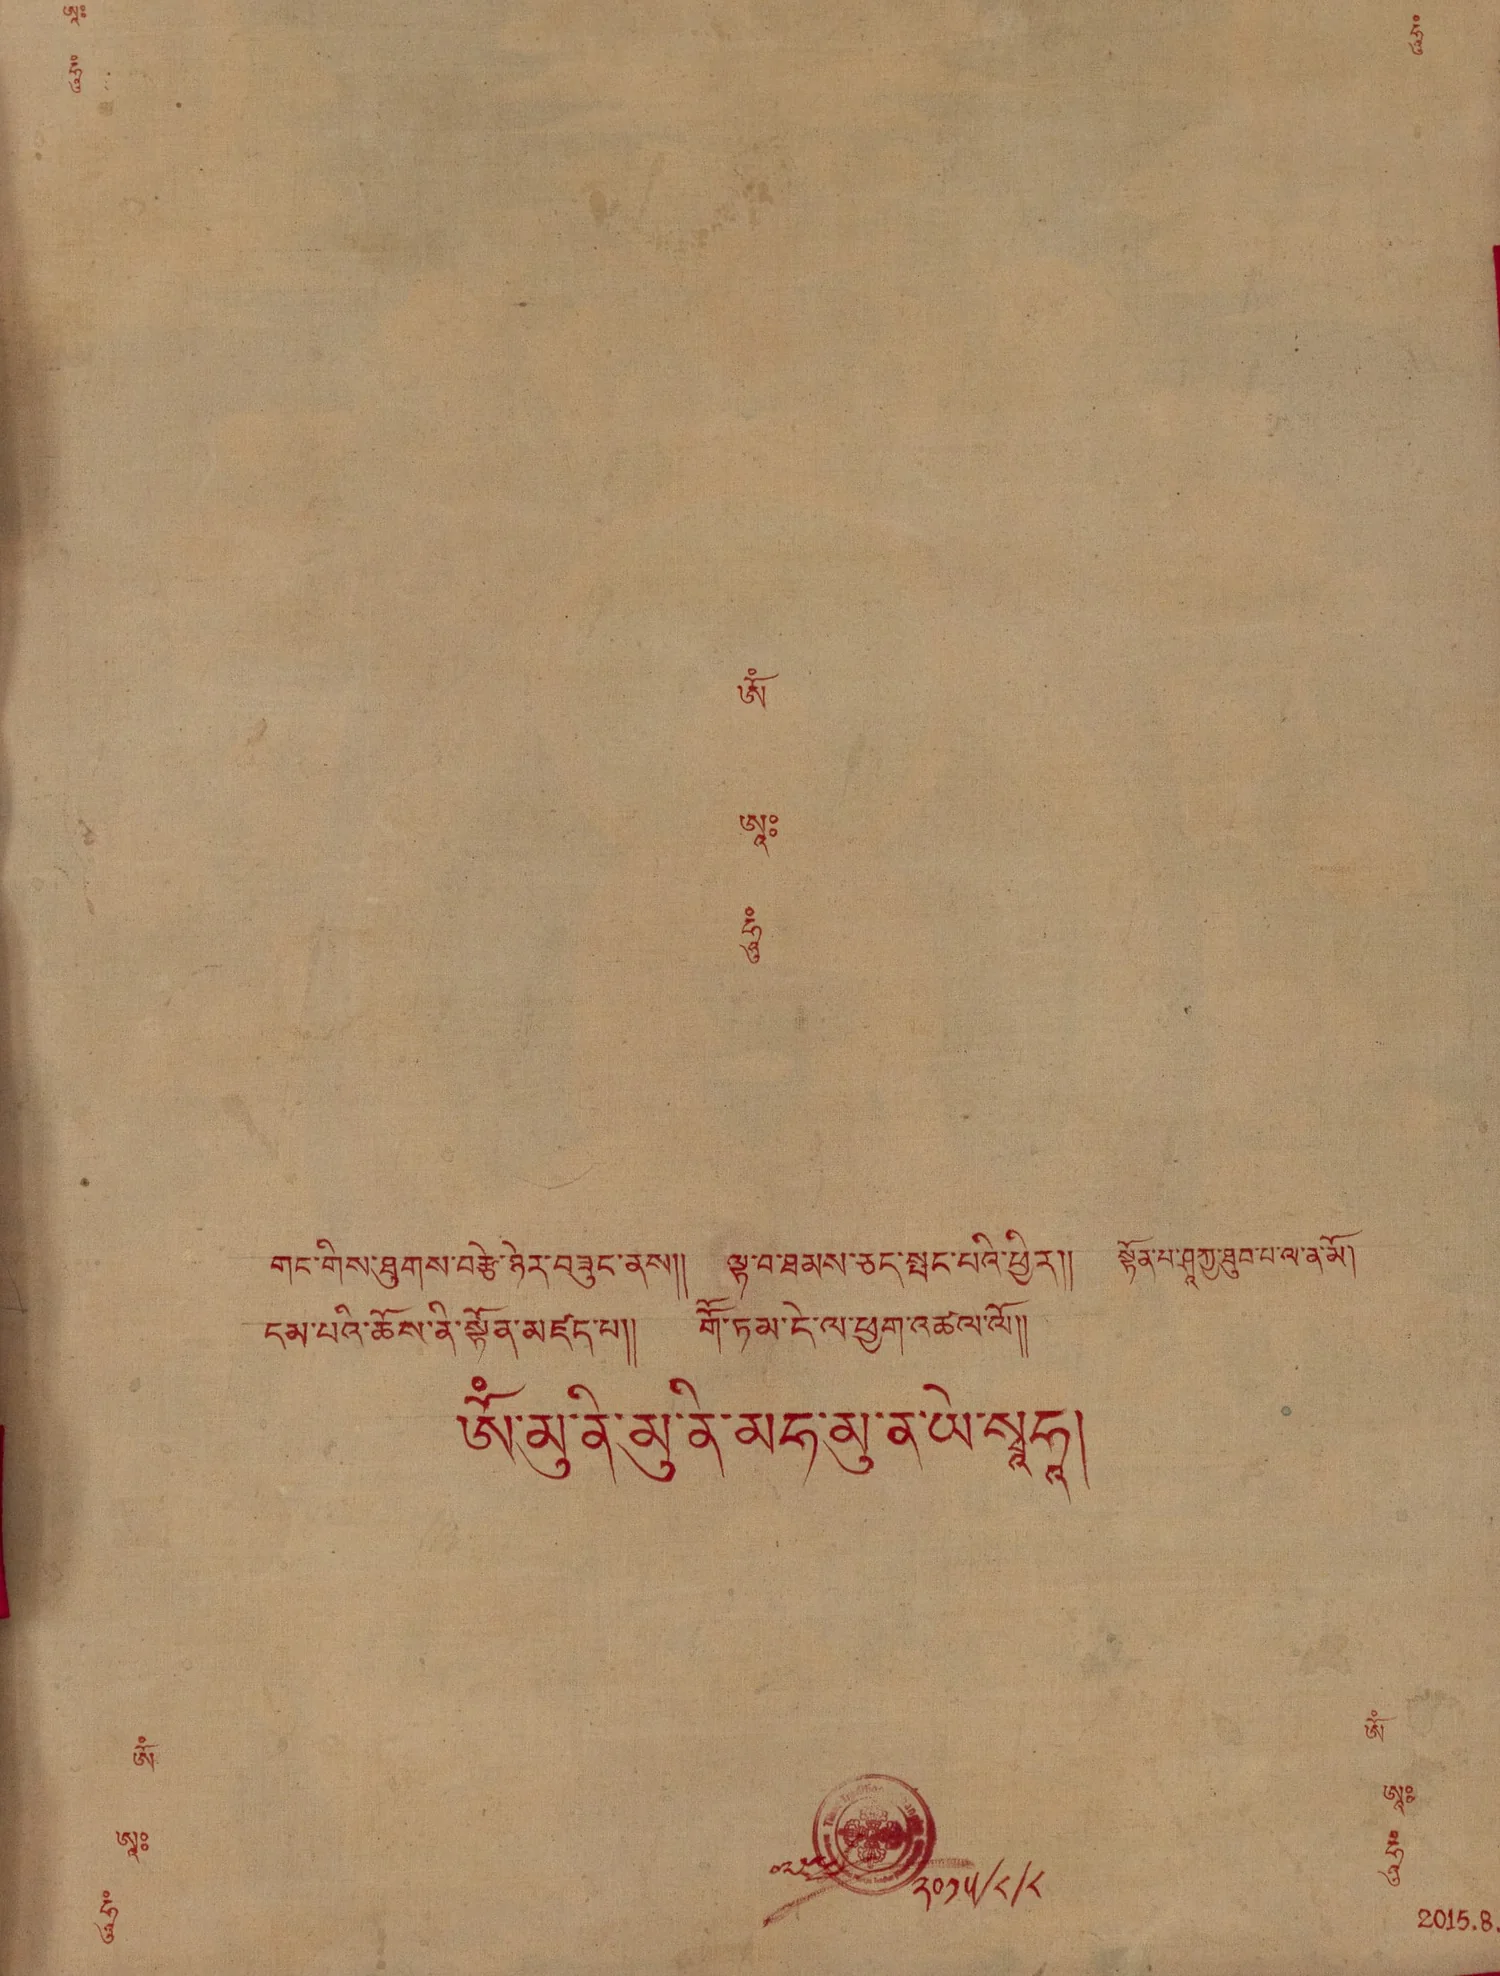 ཨཱཿ
ཧཱུྃ
ཧཱུྃ
ཨོཾ
ཨཱཿ
ཧཱུྃ
གང་གིས་ཐུགས་བརྩེ་ཉེར་བཟུང་ནས།། ལྟ་བ་ཐམས་ཅད་སྤང་པའི་ཕྱིར།། སྟོན་པ་ཤཱཀྱ་ཐུབ་པ་ལ་ན་མོ།
དམ་པའི་ཆོས་ནི་སྟོན་མཛད་པ།། གོ་ཏམ་དེ་ལ་ཕྱག་འཚལ་ལོ།།
ཨོཾ་མུ་ནི་མུ་ནི་མཧ་མུ་ན་ཡེ་སྭཱཧཱ།
ཨོཾ
ཨཱཿ
ཧཱུྃ
ཨོཾ
ཨཱཿ
ཧཱུྃ
༢༠༡༥/༨/༨
2015.8.